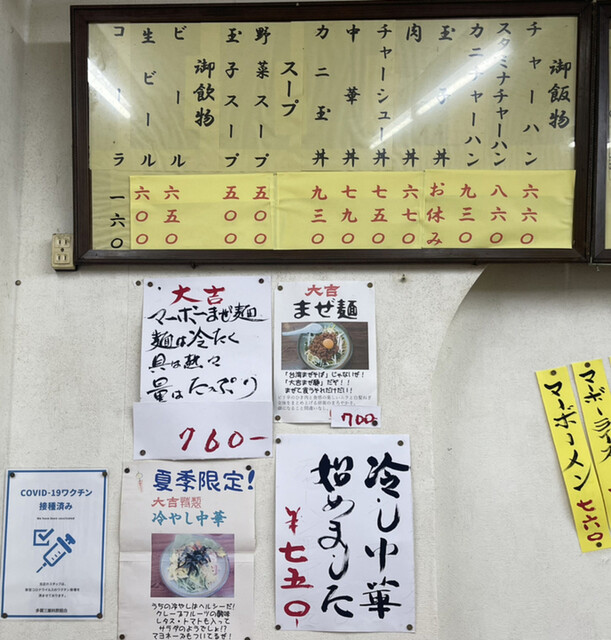 御飯物
チャーハン 六六〇
スタミナチャーハン 八六〇
カニチャーハン 九三〇
玉子丼 お休み
肉丼 六七〇
チャーシュー丼 七五〇
中華丼 七九〇
カニ玉丼 九三〇
スープ
野菜スープ 五〇〇
玉子スープ 五〇〇
御飲物
ビール 六五〇
生ビール 六〇〇
コーラ 一六〇
大吉
マーボーまぜ麺
麺は冷たく
具は熱々
量はたっぷり
760-
大吉
まぜ麺
「台湾まぜそば」じゃないぜ!
「大吉まぜ麺」だぜ!!
まぜて食うそれだけだい!
700-
マーボーメン 七六〇
COVID-19ワクチン
接種済み
夏季限定!
大吉特製
冷やし中華
うちの冷やしはヘルシーだ!
グレープフルーツの酸味
レタス・トマトも入って
サラダのようでしょ!?
マヨネーズもついてるぜ!
冷し中華
始めました
¥七五〇